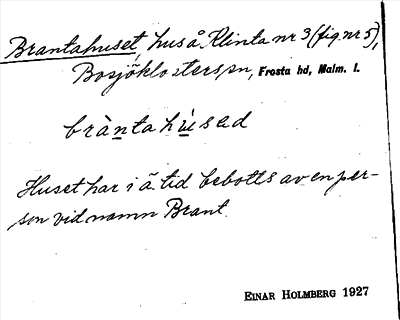 Brantahuset, hus å Klinta nr 3 (fig. nr 5),
Bosjöklosters sn, Frosta hd, Malm. l.
bràntahúsad
Huset har i ä. tid bebotts av en per-
son vid namn Brant.
EINAR HOLMBERG 1927